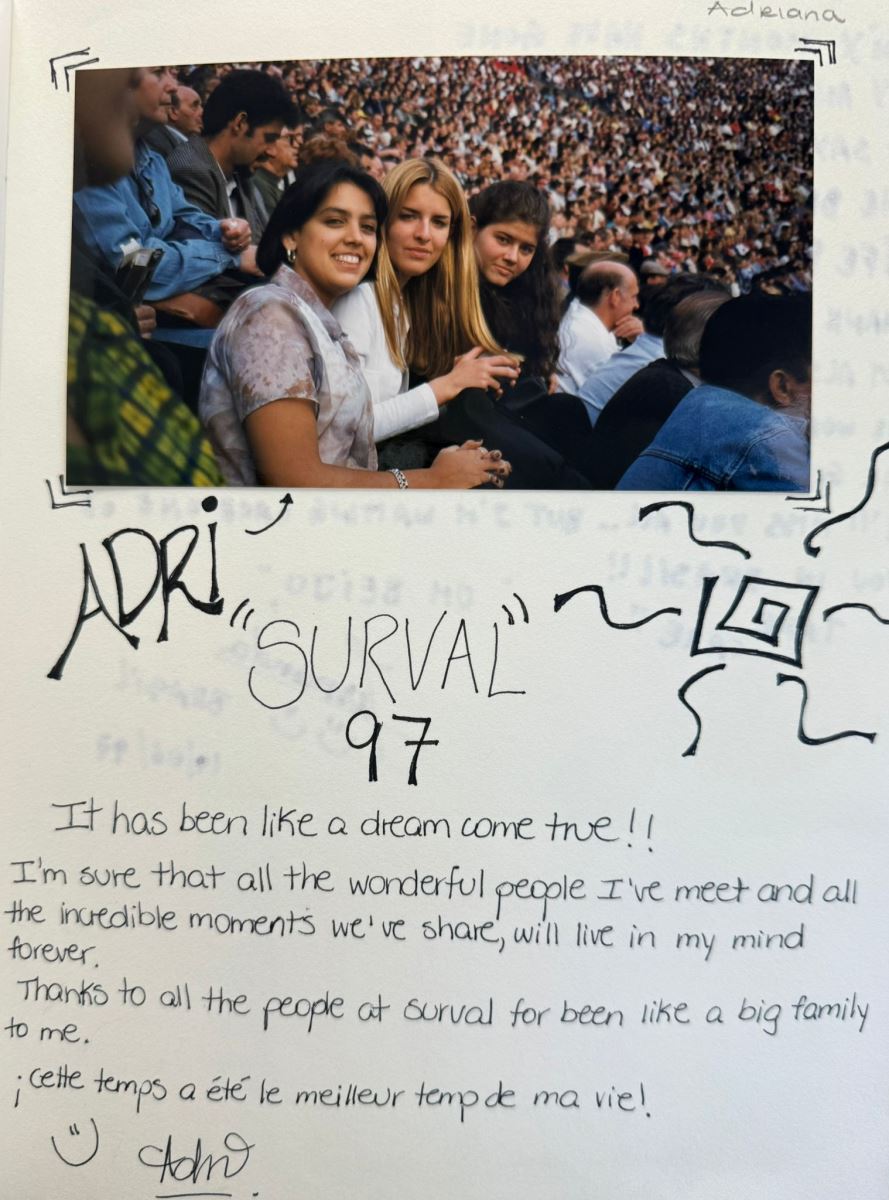 Adriana
ADRi
"SURVAL"
97
It has been like a dream come true!!
I'm sure that all the wonderful people I've meet and all
the incredible moments we've share, will live in my mind
forever.
Thanks to all the people at surval for been like a big family
to me.
¡cette temps a été le meilleur temp de ma vie!
Adri